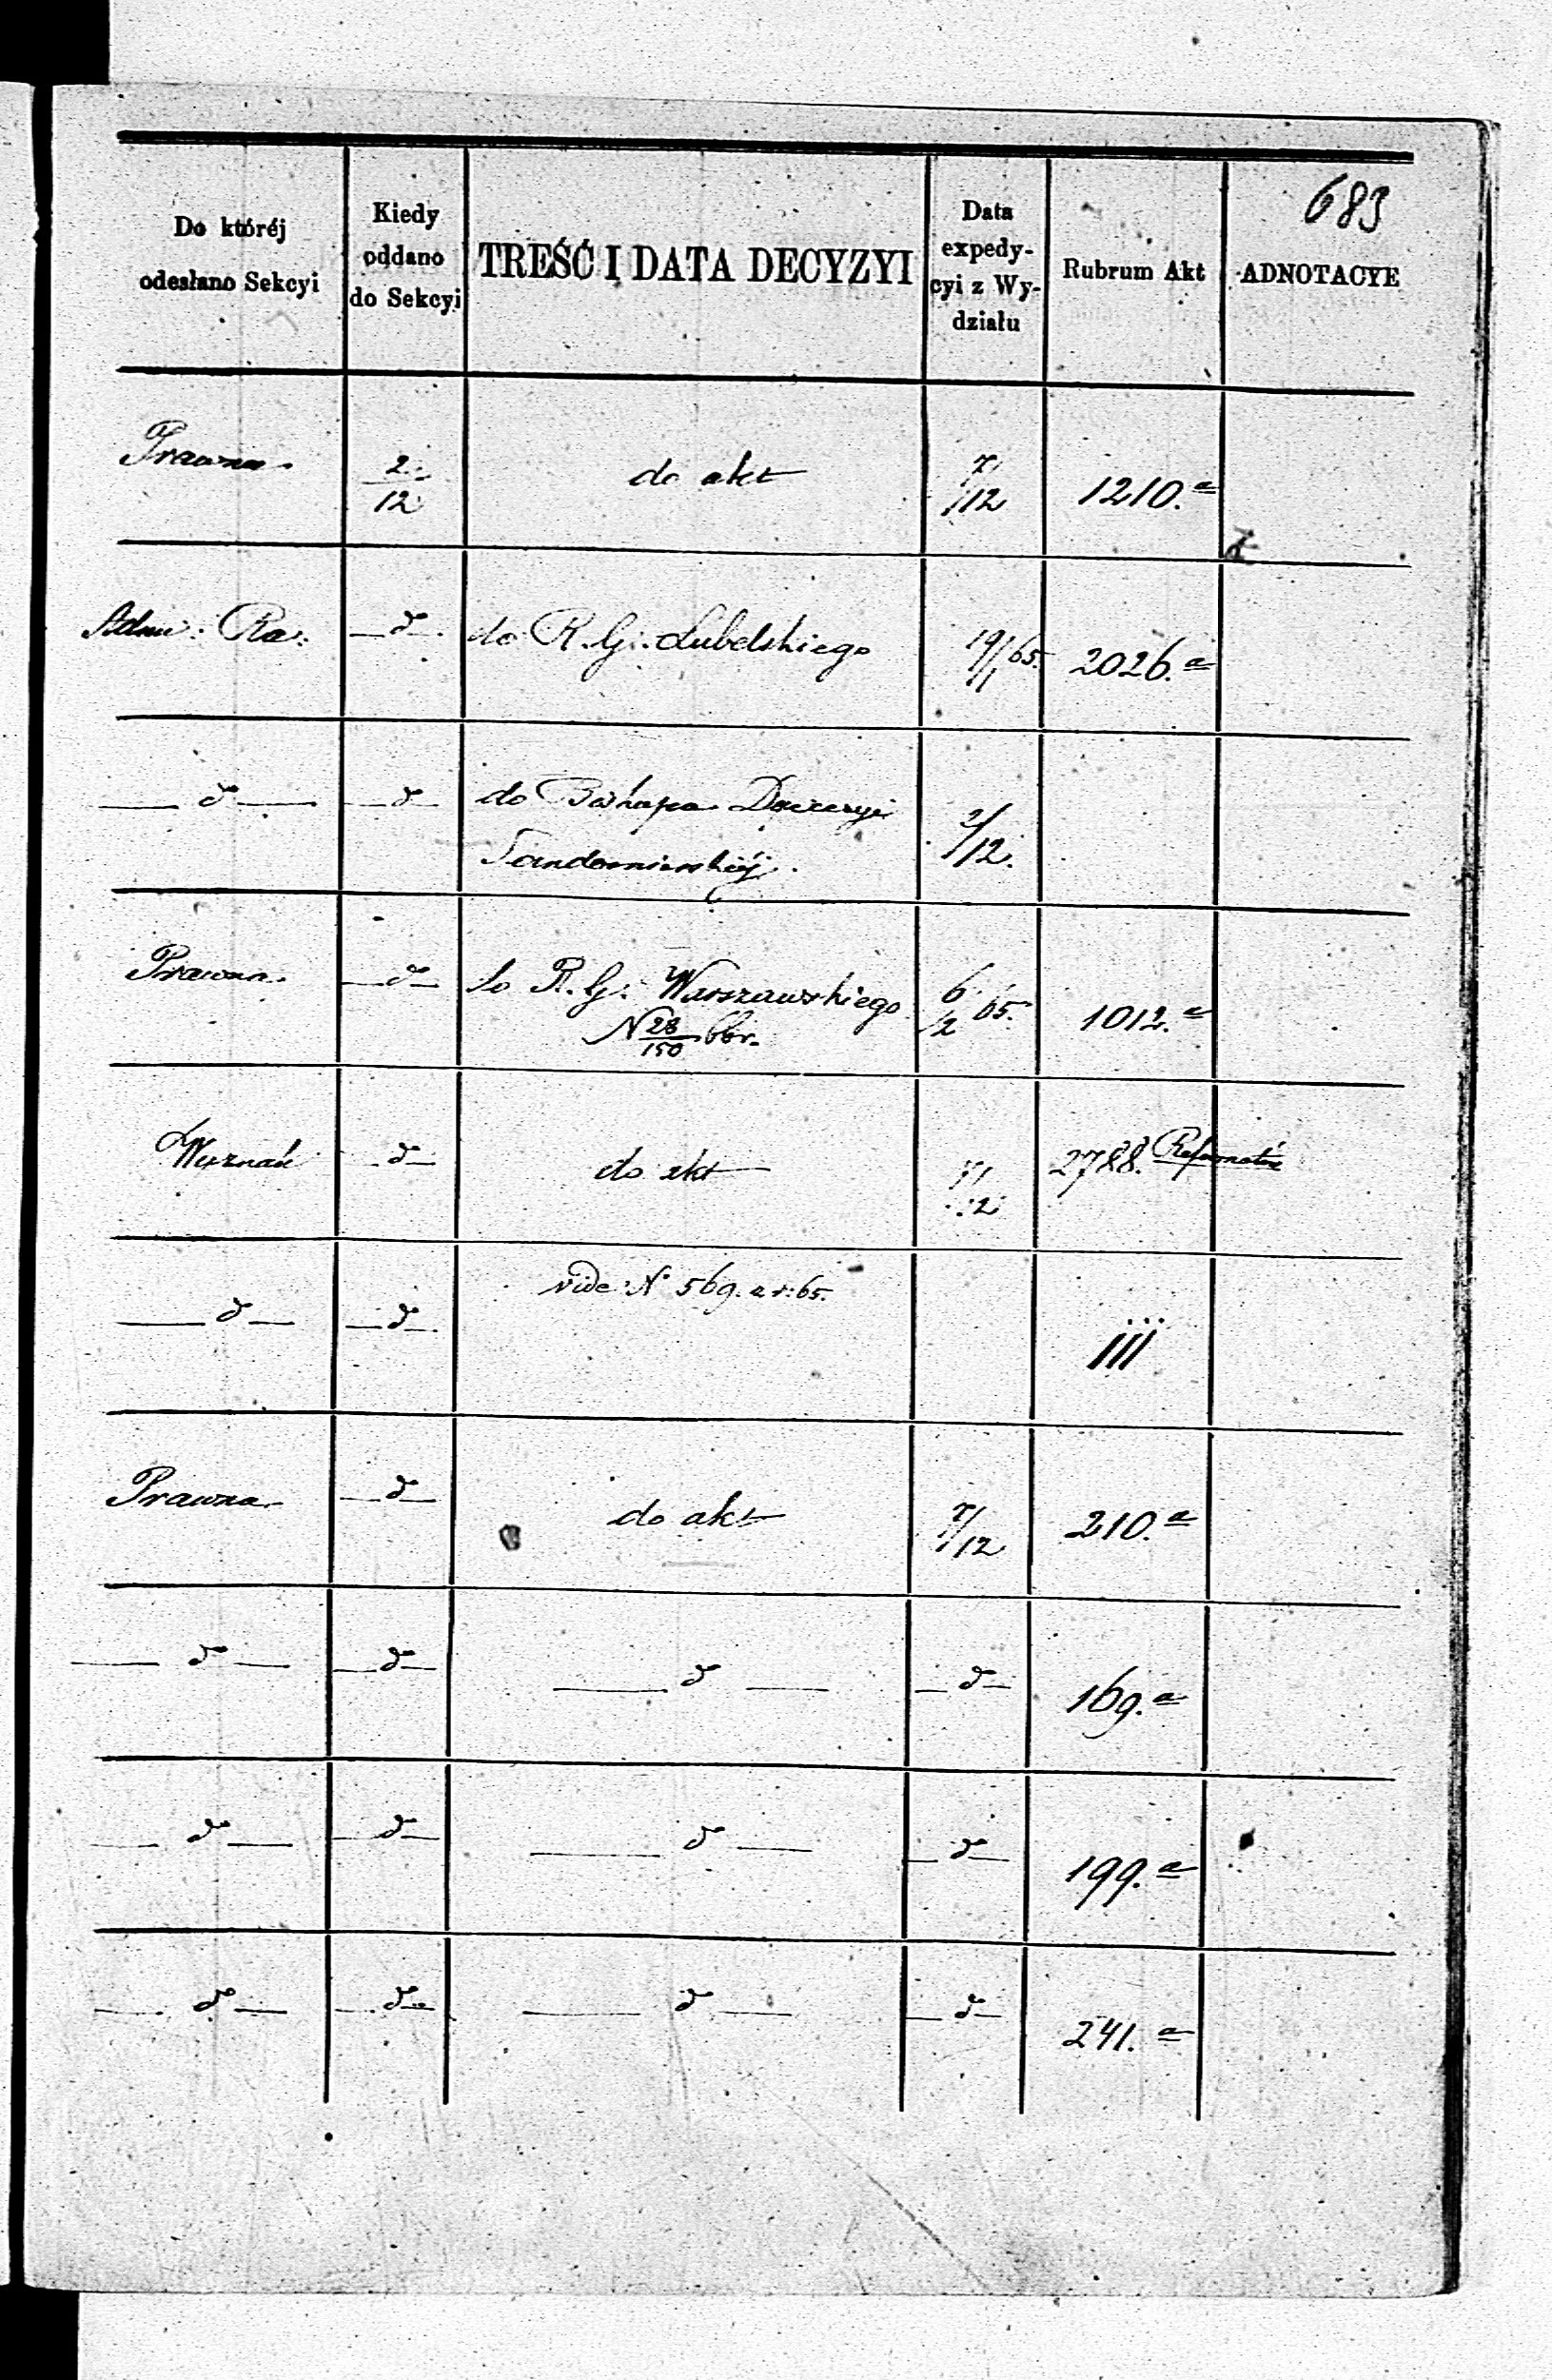 683
Do któréj
odesłano Sekcyi
Kiedy
oddano
do Sekcyi
TREŚĆ I DATA DECYZYI
Data
expedy-
cyi z Wy-
działu
Rubrum Akt
ADNOTACYE
Prawna
2
12
do akt
7/12
1210.a
Adm: Ra:
— do —
do R. G. Lubelskiego
19/1 65.
2026.a
— do —
— do —
do Biskupa Dyecezyi
Sandomierskiéj.
2/12.
Prawna
— do —
do R. G. Warszawskiego
N 28/150 65r.
6/2 65.
1012.a
Wyznań
— do —
do akt
2788. Reformatów
— do —
— do —
vide N° 569. z r: 65.
iii
Prawna
— do —
do akt
7/12
210.a
— do —
— do —
— do —
— do —
169.a
— do —
— do —
— do —
— do —
199.a
— do —
— do —
— do —
— do —
241.a